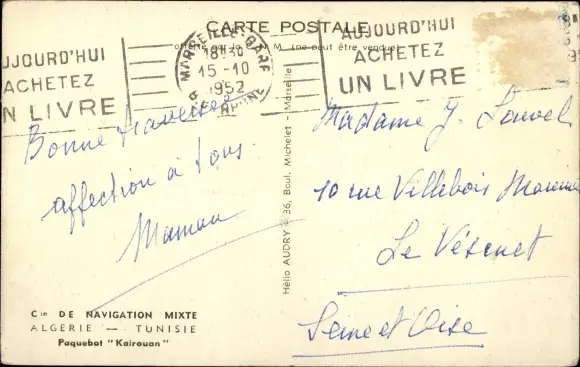 CARTE POSTALE
offerte par la C. N. M. (ne peut être vendue)
AUJOURD'HUI
ACHETEZ
UN LIVRE
MARSEILLE-GARE
18H30
15-10
1952
B. DU RHONE
AUJOURD'HUI
ACHETEZ
UN LIVRE
Bonne traversée
affection à tous
Maman
Cie DE NAVIGATION MIXTE
ALGERIE — TUNISIE
Paquebot "Kairouan"
Hélio AUDRY 36, Boul. Michelet - Marseille
Madame J. Louvel
10 rue Villebois Mareuil
Le Vésinet
Seine et Oise